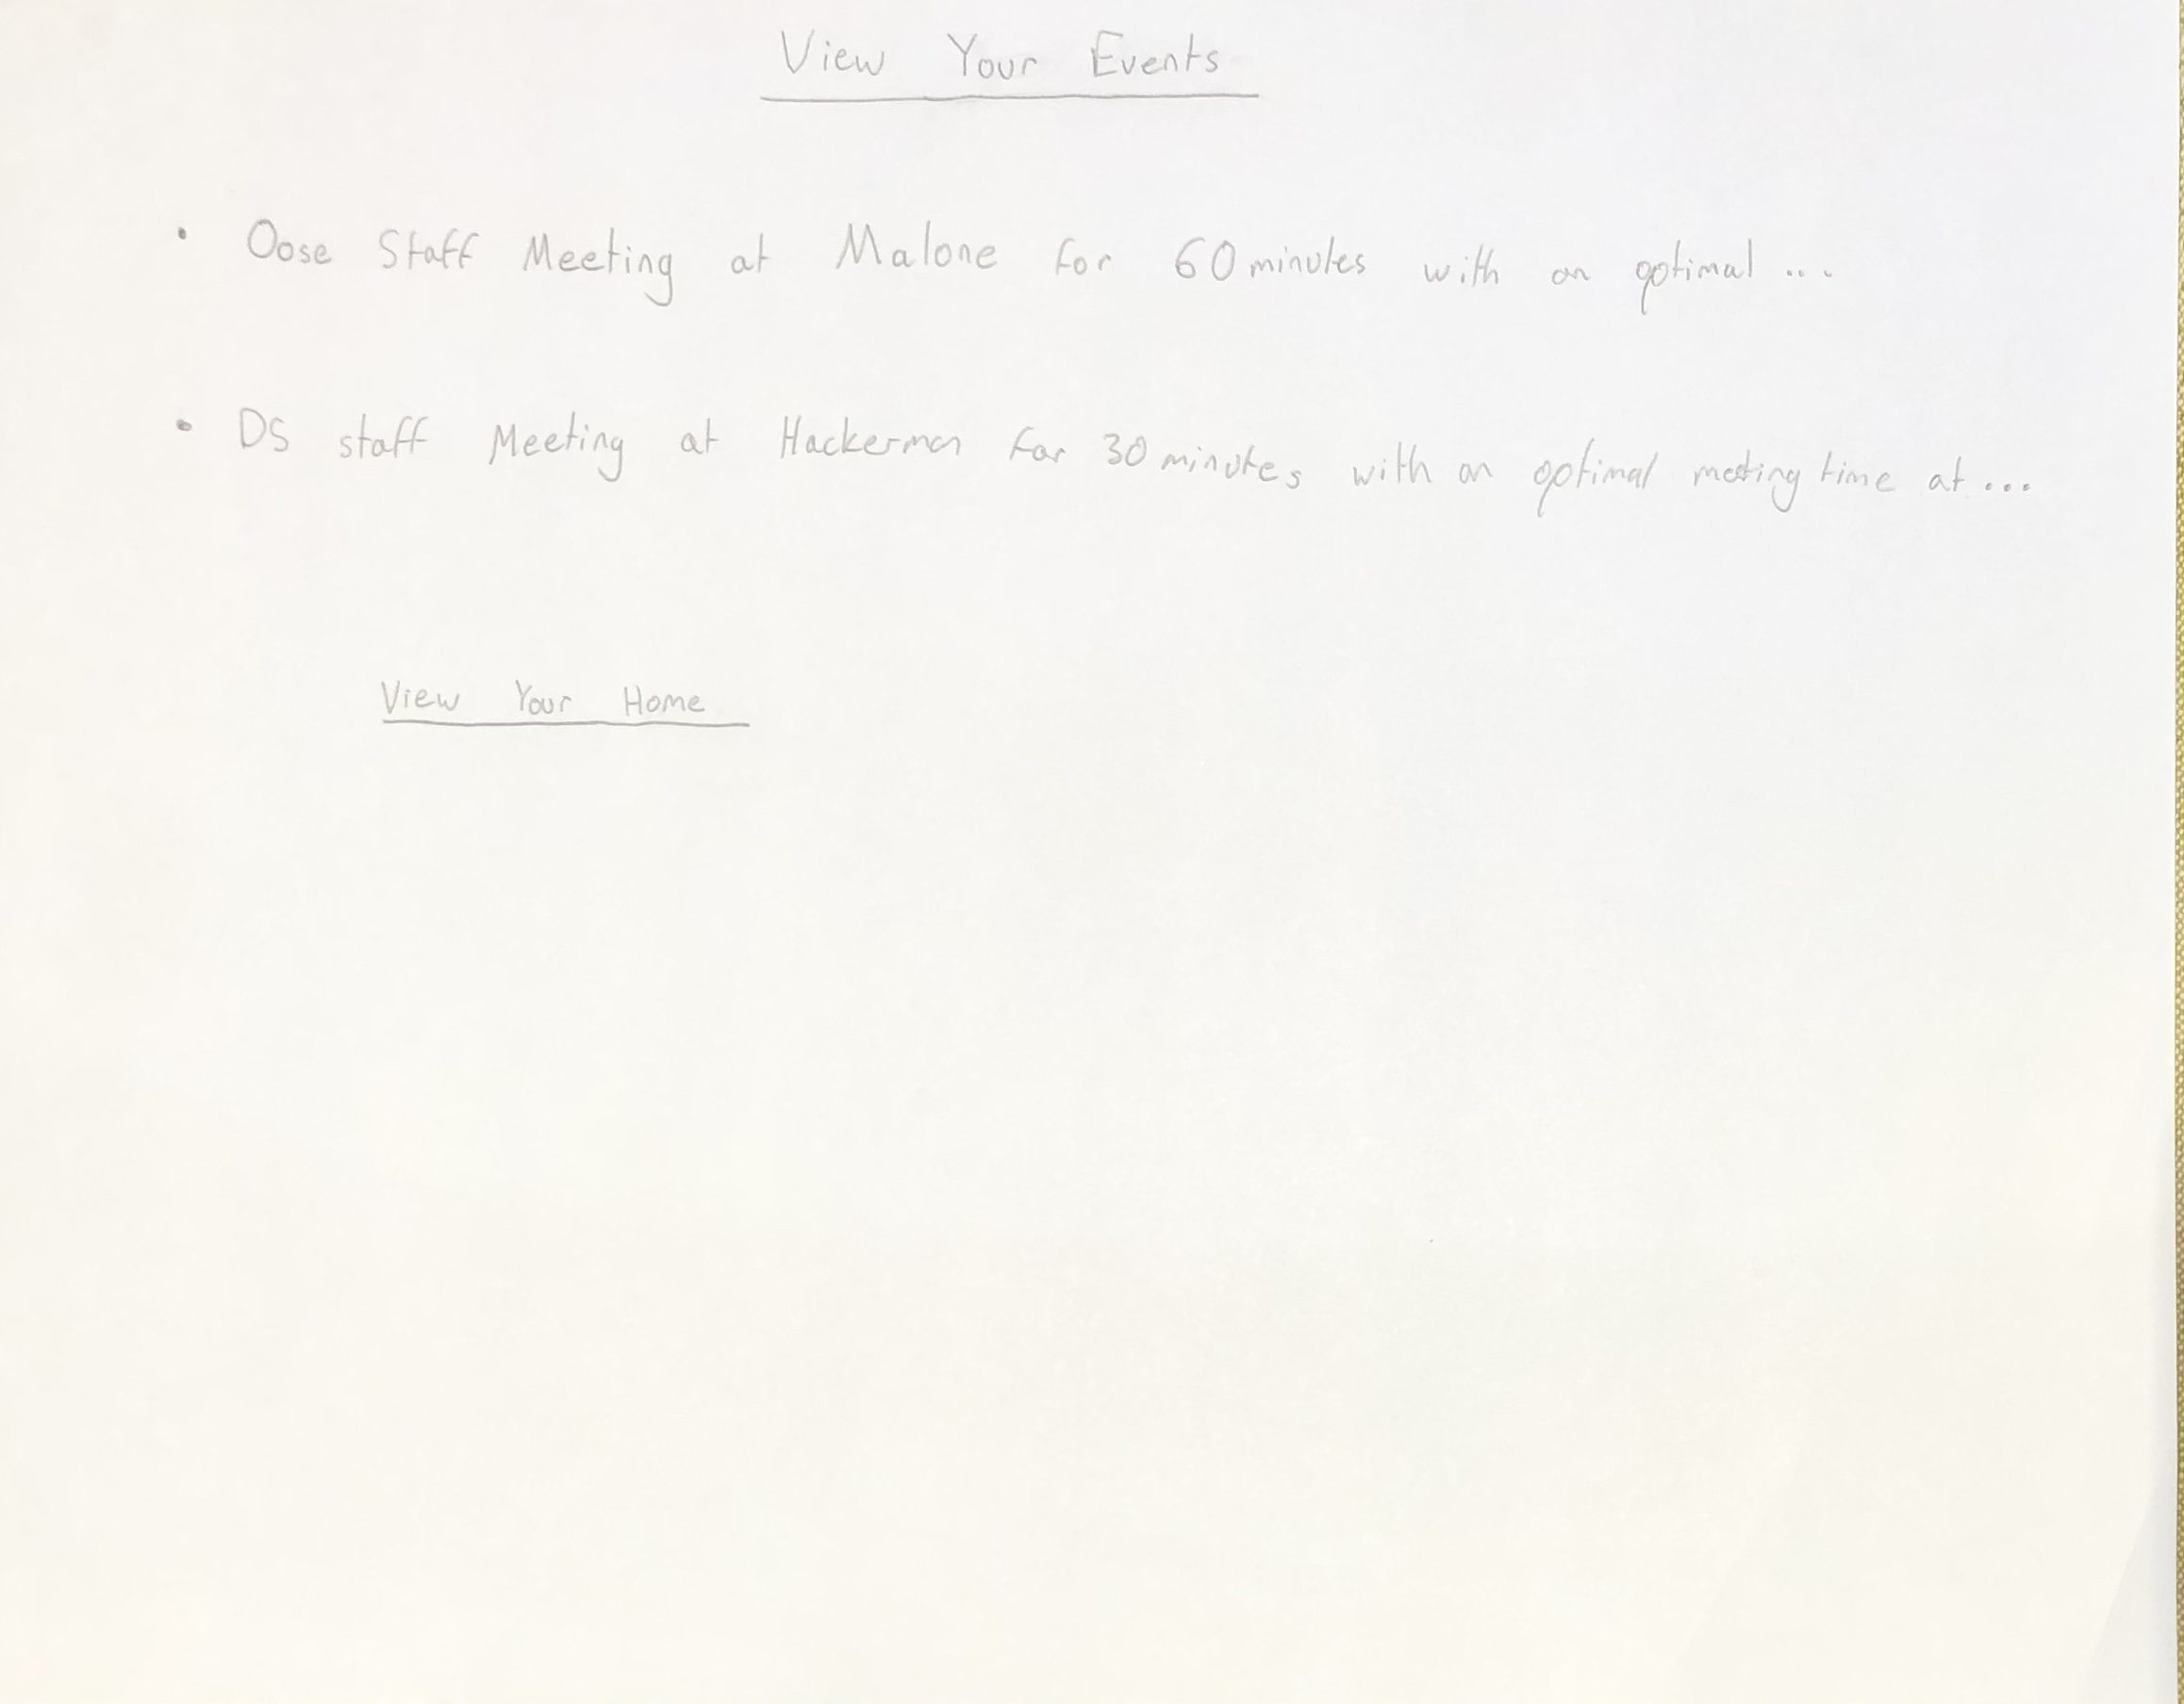 View Your Events
• Oose Staff Meeting at Malone for 60 minutes with an optimal ...
• DS staff Meeting at Hackerman for 30 minutes with an optimal meeting time at ...
View Your Home